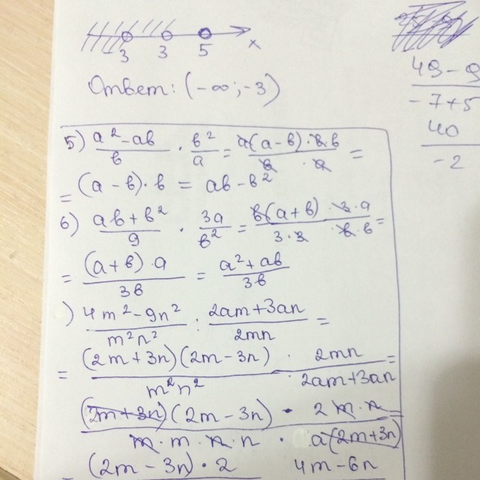 -3 3 5 x
Ответ: (-∞; -3)
49 - 9
-7+5
40
-2
5) a² - ab / b · b² / a = a(a - b) · b · b / b · a =
= (a - b) · b = ab - b²
6) ab + b² / 9 · 3a / b² = b(a + b) · 3 · a / 3 · 3 · b · b =
= (a + b) · a / 3b = a² + ab / 3b
) 4m² - 9n² / m²n² : 2am + 3an / 2mn =
= (2m + 3n)(2m - 3n) / m²n² · 2mn / 2am + 3an =
(2m + 3n)(2m - 3n) · 2 m · n / m · m · n · n · a(2m + 3n) =
= (2m - 3n) · 2 4m - 6n